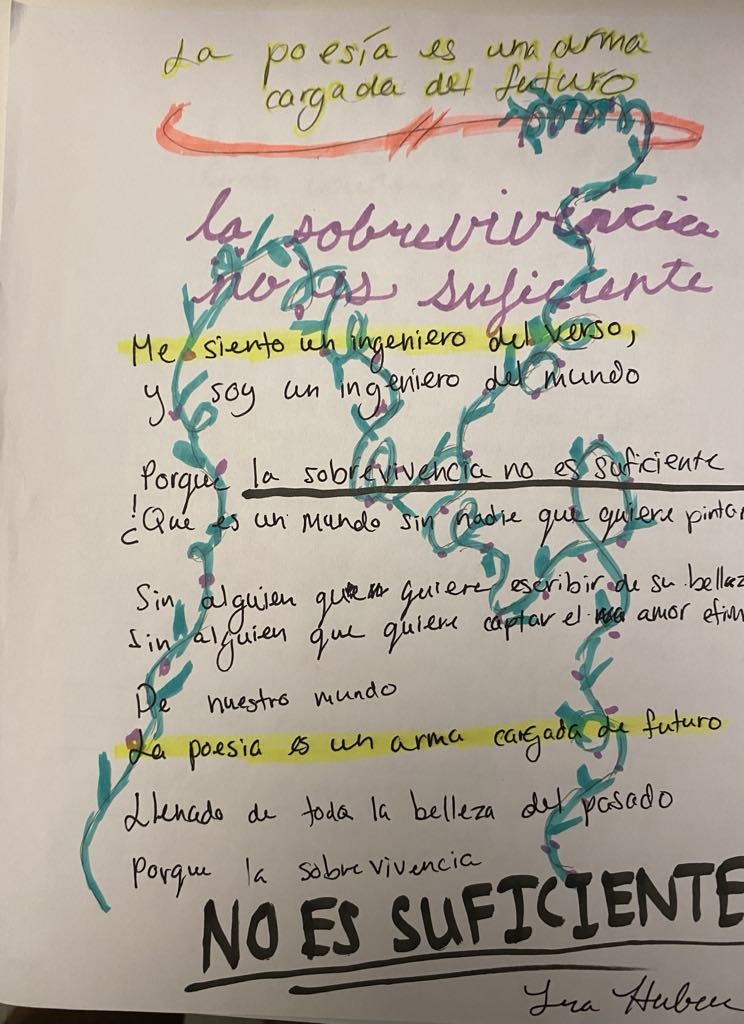 La poesía es una arma
cargada del futuro
la sobrevivencia
no es suficiente
Me siento un ingeniero del verso,
y soy un ingeniero del mundo
Porque la sobrevivencia no es suficiente
¿Que es un mundo sin nadie que quiere pintar
Sin alguien quien quiere escribir de su bellez
Sin alguien que quiere captar el amor efím
De nuestro mundo
La poesia es un arma cargada de futuro
Llenado de toda la belleza del pasado
Porque la sobrevivencia
NO ES SUFICIENTE